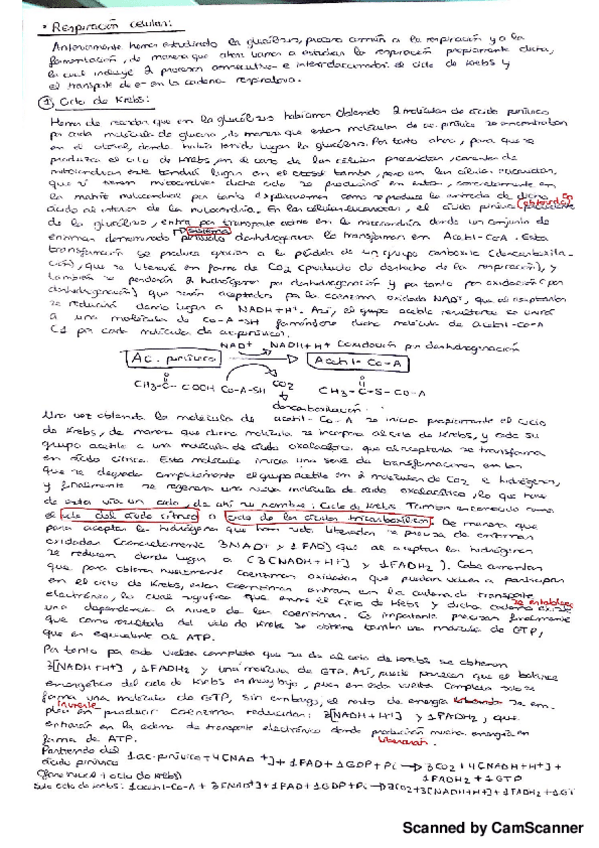 • Respiración celular:
Anteriormente hemos estudiado la glucólisis, proceso común a la respiración y a la
fermentación, de manera que ahora vamos a estudiar la respiración propiamente dicha,
la cual incluye 2 procesos consecutivos e interrelacionados: el ciclo de Krebs y
el transporte de e- en la cadena respiratoria.
① Ciclo de Krebs:
Hemos de recordar que en la glucólisis habíamos obtenido 2 moléculas de ácido pirúvico
por cada molécula de glucosa, de manera que estas moléculas de ac. pirúvico se encontraban
en el citosol, donde había tenido lugar la glucólisis. Por tanto ahora, para que se
produzca el ciclo de Krebs, en el caso de las células procariotas, carentes de
mitocondrias este tendrá lugar en el citosol también, pero en las células eucariotas,
que sí tienen mitocondrias dicho ciclo se producirá en estas, concretamente en
la matriz mitocondrial por tanto explicaremos como se produce la entrada de dicho
ácido al interior de la mitocondria. En las células eucariotas, el ácido pirúvico obtenido
de la glucólisis, entra por transporte activo en la mitocondria donde un conjunto de
enzimas denominado sistema piruvato deshidrogenasa lo transforman en Acetil-CoA. Esta
transformación se produce gracias a la pérdida de un grupo carboxilo (descarboxila-
ción), que se liberará en forma de CO2 (producto de deshecho de la respiración), y
también se perderán 2 hidrógenos por deshidrogenación y por tanto por oxidación (por
deshidrogenación) que serán aceptados por la coenzima oxidada NAD+, que al aceptarlos
se reducirá dando lugar a NADH+H+. Así, el grupo acetilo resultante se unirá
a una molécula de Co-A-SH formándose dicha molécula de acetil-Co-A
(1 por cada molécula de ac. pirúvico).
NAD+ NADH+H+ (oxidación por deshidrogenación
Ac. pirúvico → Acetil-Co-A
CH3-C-COOH Co-A-SH CO2 CH3-C-S-Co-A
descarboxilación
Una vez obtenida la molécula de acetil-Co-A se inicia propiamente el ciclo
de Krebs, de manera que dicha molécula se incorpora al ciclo de Krebs, y cede su
grupo acetilo a una molécula de ácido oxalacético que al aceptarla se transforma
en ácido cítrico. Esta molécula inicia una serie de transformaciones en las
que se degrada completamente el grupo acetilo en 2 moléculas de CO2 e hidrógenos,
y finalmente se regenera una nueva molécula de ácido oxalacético, lo que hace
de esta vía un ciclo, de ahí su nombre: Ciclo de Krebs. También es conocido como
el ciclo del ácido cítrico o ciclo de los ácidos tricarboxílicos. De manera que
para aceptar los hidrógenos que han sido liberados se precisa de enzimas
oxidadas (concretamente 3NAD+ y 1 FAD) que al aceptar los hidrógenos
se reducen dando lugar a (3[NADH+H+] y 1FADH2). Cabe comentar
que para obtener nuevamente coenzimas oxidadas que puedan volver a participar
en el ciclo de Krebs, estas coenzimas entran en la cadena de transporte
electrónico, lo cual significa que entre el ciclo de Krebs y dicha cadena se establece
una dependencia a nivel de las coenzimas. Es importante precisar finalmente
que como resultado del ciclo de Krebs se obtiene también una molécula de GTP,
que es equivalente al ATP.
Por tanto por cada vuelta completa que se da al ciclo de Krebs se obtienen
3[NADH+H+], 1FADH2 y una molécula de GTP. Así, puede parecer que el balance
energético del ciclo de Krebs es muy bajo, pues en cada vuelta completa solo se
forma una molécula de GTP, sin embargo, el resto de energía liberada se em-
invierte
plea en producir coenzimas reducidas: 3[NADH+H+] y 1FADH2, que
entrarán en la cadena de transporte electrónico donde producirán mucha energía en
liberarán
forma de ATP.
Partiendo del 1 ac. pirúvico + 4[NAD+] + 1FAD + 1GDP + Pi → 3CO2 + 4[NADH+H+] +
ácido pirúvico 1FADH2 + 1GTP
Solo ciclo de Krebs: 1acetil-Co-A + 3[NAD+] + 1FAD + 1GDP + Pi → 2CO2 + 3[NADH+H+] + 1FADH2 + 1GT
Scanned by CamScanner